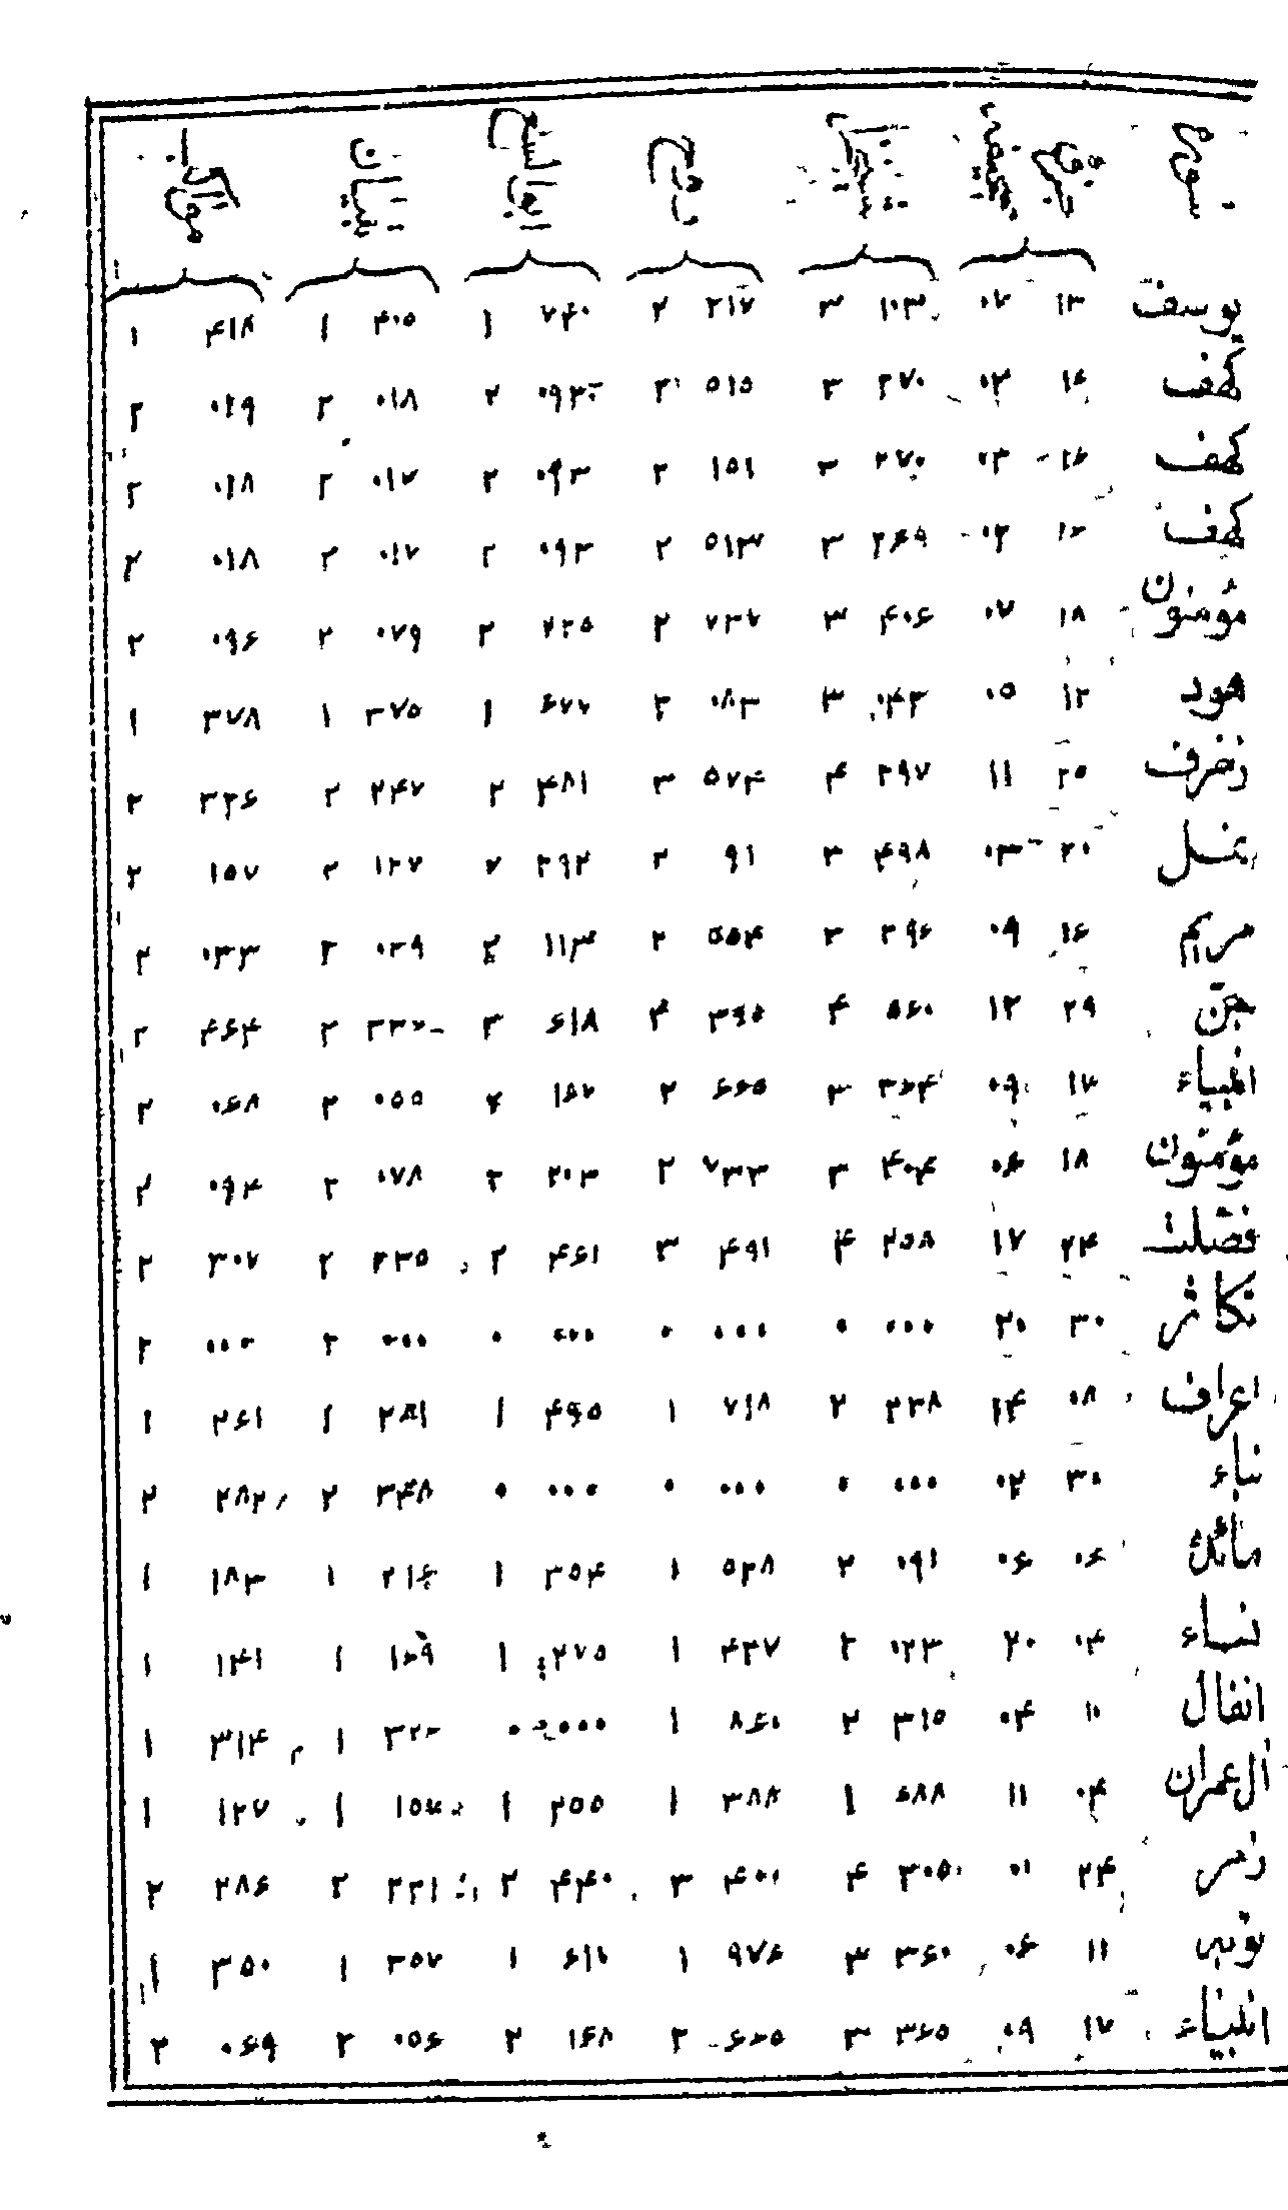 یوسف ۱۳ ۰۷ ۱۰۳ ۳ ۲۱۷ ۲ ۷۴۰ ۱ ۴۰۵ ۱ ۴۱۸ ۱
کهف ۱۶ ۰۳ ۲۷۰ ۳ ۵۱۵ ۲ ۰۹۳ ۲ ۰۱۸ ۲ ۰۱۹ ۲
کهف ۱۶ ۰۳ ۲۷۰ ۳ ۱۵۱ ۲ ۰۹۳ ۲ ۰۱۷ ۲ ۰۱۸ ۲
کهف ۱۶ ۰۲ ۲۶۹ ۳ ۵۱۳ ۲ ۰۹۳ ۲ ۰۱۷ ۲ ۰۱۸ ۲
مؤمنون ۱۸ ۰۷ ۴۰۶ ۳ ۷۳۷ ۲ ۲۲۵ ۲ ۰۷۹ ۲ ۰۹۶ ۲
هود ۱۲ ۰۵ ۰۴۳ ۳ ۰۸۳ ۲ ۶۷۷ ۱ ۳۷۵ ۱ ۳۷۸ ۱
زخرف ۲۵ ۱۱ ۲۹۷ ۴ ۵۷۴ ۳ ۴۸۱ ۲ ۲۴۷ ۲ ۳۲۶ ۲
نمل ۲۰ ۰۳ ۴۹۸ ۳ ۹۱ ۲ ۲۹۲ ۲ ۱۲۷ ۲ ۱۵۷ ۲
مریم ۱۶ ۰۹ ۲۹۶ ۳ ۵۵۴ ۲ ۱۱۳ ۲ ۰۲۹ ۲ ۰۳۳ ۲
جن ۲۹ ۱۲ ۵۶۰ ۴ ۳۹۵ ۴ ۶۱۸ ۳ ۳۳۷ ۲ ۴۶۴ ۲
انبیاء ۱۷ ۰۹ ۳۶۴ ۳ ۶۶۵ ۲ ۱۶۷ ۲ ۰۵۵ ۲ ۰۶۸ ۲
مؤمنون ۱۸ ۰۶ ۴۰۴ ۳ ۷۳۳ ۲ ۲۰۳ ۲ ۰۷۸ ۲ ۰۹۴ ۲
فصلت ۲۴ ۱۷ ۲۵۸ ۴ ۴۹۱ ۳ ۴۶۱ ۲ ۲۳۵ ۲ ۳۰۷ ۲
تکاثر ۳۰ ۲۰ ۰۰۰ ۰ ۰۰۰ ۰ ۰۰۰ ۰ ۰۰۰ ۲ ۰۰۰ ۲
اعراف ۰۸ ۱۴ ۲۳۸ ۲ ۷۱۸ ۱ ۴۹۵ ۱ ۲۸۱ ۱ ۲۶۱ ۱
نباء ۳۰ ۰۲ ۰۰۰ ۰ ۰۰۰ ۰ ۰۰۰ ۰ ۳۴۸ ۲ ۲۸۲ ۲
مائده ۰۶ ۰۶ ۰۹۱ ۲ ۵۲۸ ۱ ۳۵۴ ۱ ۲۱۶ ۱ ۱۸۳ ۱
نساء ۰۴ ۲۰ ۰۲۳ ۲ ۴۳۷ ۱ ۲۷۵ ۱ ۱۶۹ ۱ ۱۴۱ ۱
انفال ۱۰ ۰۴ ۳۱۵ ۲ ۸۶۰ ۱ ۰۰۰ ۰ ۳۲۰ ۱ ۳۱۴ ۱
آل عمران ۰۴ ۱۱ ۶۸۸ ۱ ۳۸۸ ۱ ۲۵۵ ۱ ۱۵۷ ۱ ۱۲۷ ۱
زمر ۲۴ ۰۱ ۲۰۵ ۴ ۴۰۰ ۳ ۴۴۰ ۲ ۲۲۱ ۲ ۲۸۶ ۲
توبه ۱۱ ۰۶ ۳۶۰ ۳ ۹۷۶ ۱ ۶۱۰ ۱ ۳۵۷ ۱ ۳۵۰ ۱
انبیاء ۱۷ ۰۹ ۳۶۵ ۳ ۶۶۵ ۲ ۱۶۸ ۲ ۰۵۶ ۲ ۰۶۹ ۲